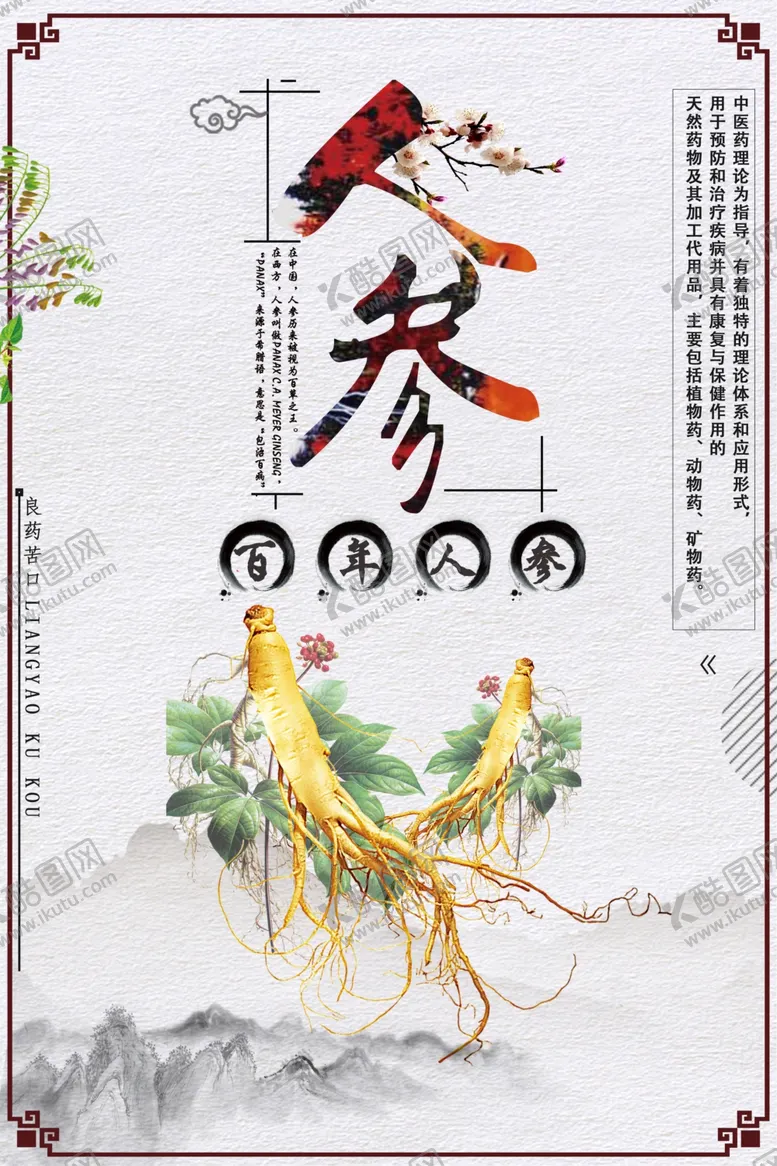 人参
中医药理论为指导，有着独特的理论体系和应用形式，
用于预防和治疗疾病并具有康复与保健作用的
天然药物及其加工代用品，主要包括植物药、动物药、矿物药。
在中国，人参历来被视为百草之王。
在西方，人参叫做PANAX C.A. MEYER GINSENG，
“PANAX”来源于希腊语，意思是“包治百病”
百年人参
良药苦口LIANGYAO KU KOU
酷图网
www.ikutu.com